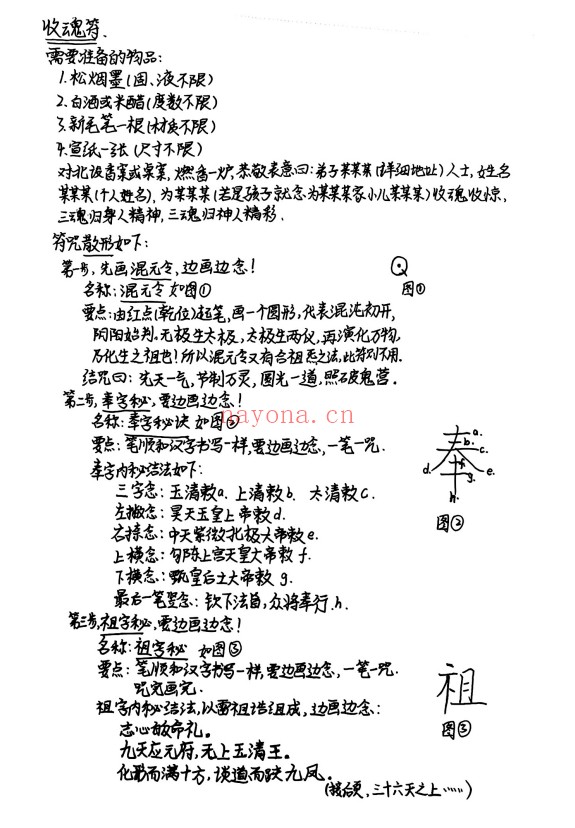 收魂符.
需要准备的物品:
1.松烟墨(固、液不限)
2.白酒或米醋(度数不限)
3.新毛笔一根(材质不限)
4.宣纸一张(尺寸不限)
对北设香案或桌案,燃香一炉,恭敬表意曰:弟子某某某(详细地址)人士,姓名
某某某(个人姓名),为某某某(若是孩子就念为某某某家小儿某某某)收魂收惊,
三魂归身人精神,三魂归神人精彩.
符咒散形如下:
第一步,先画混元令,边画边念!
名称:混元令 如图①
图①
要点:由红点(乾位)起笔,画一个圆形,代表混沌初开,
阴阳始判.无极生太极,太极生两仪,再演化万物,
乃化生之祖也!所以混元令又有合祖炁之法,此符列不用.
结咒曰:先天一气,节制万灵,圆光一道,照破鬼营.
第二步,奉字秘,要边画边念!
nayona.cn
名称:奉字秘诀 如图②
要点:笔顺和汉字书写一样,要边画边念,一笔一咒.
奉字内秘法如下:
三字念:玉清敕a. 上清敕b. 太清敕c.
左撇念:昊天玉皇上帝敕d.
右捺念:中天紫微北极大帝敕e.
上横念:勾陈上宫天皇大帝敕f.
下横念:甄皇后土大帝敕g.
最后一笔竖念:钦下法旨,众将奉行.h.
奉
a.
b.
c.
d.
e.
f.
g.
h.
图②
第三步,祖字秘,要边画边念!
名称:祖字秘 如图③
要点:笔顺和汉字书写一样,要边画边念,一笔一咒.
咒完画完.
祖字内秘法,以雷祖诰组成,边画边念:
志心皈命礼.
九天应元府,无上玉清王.
化形而满十方,谈道而趺九凤.
(接后页,三十六天之上……)
祖
图③